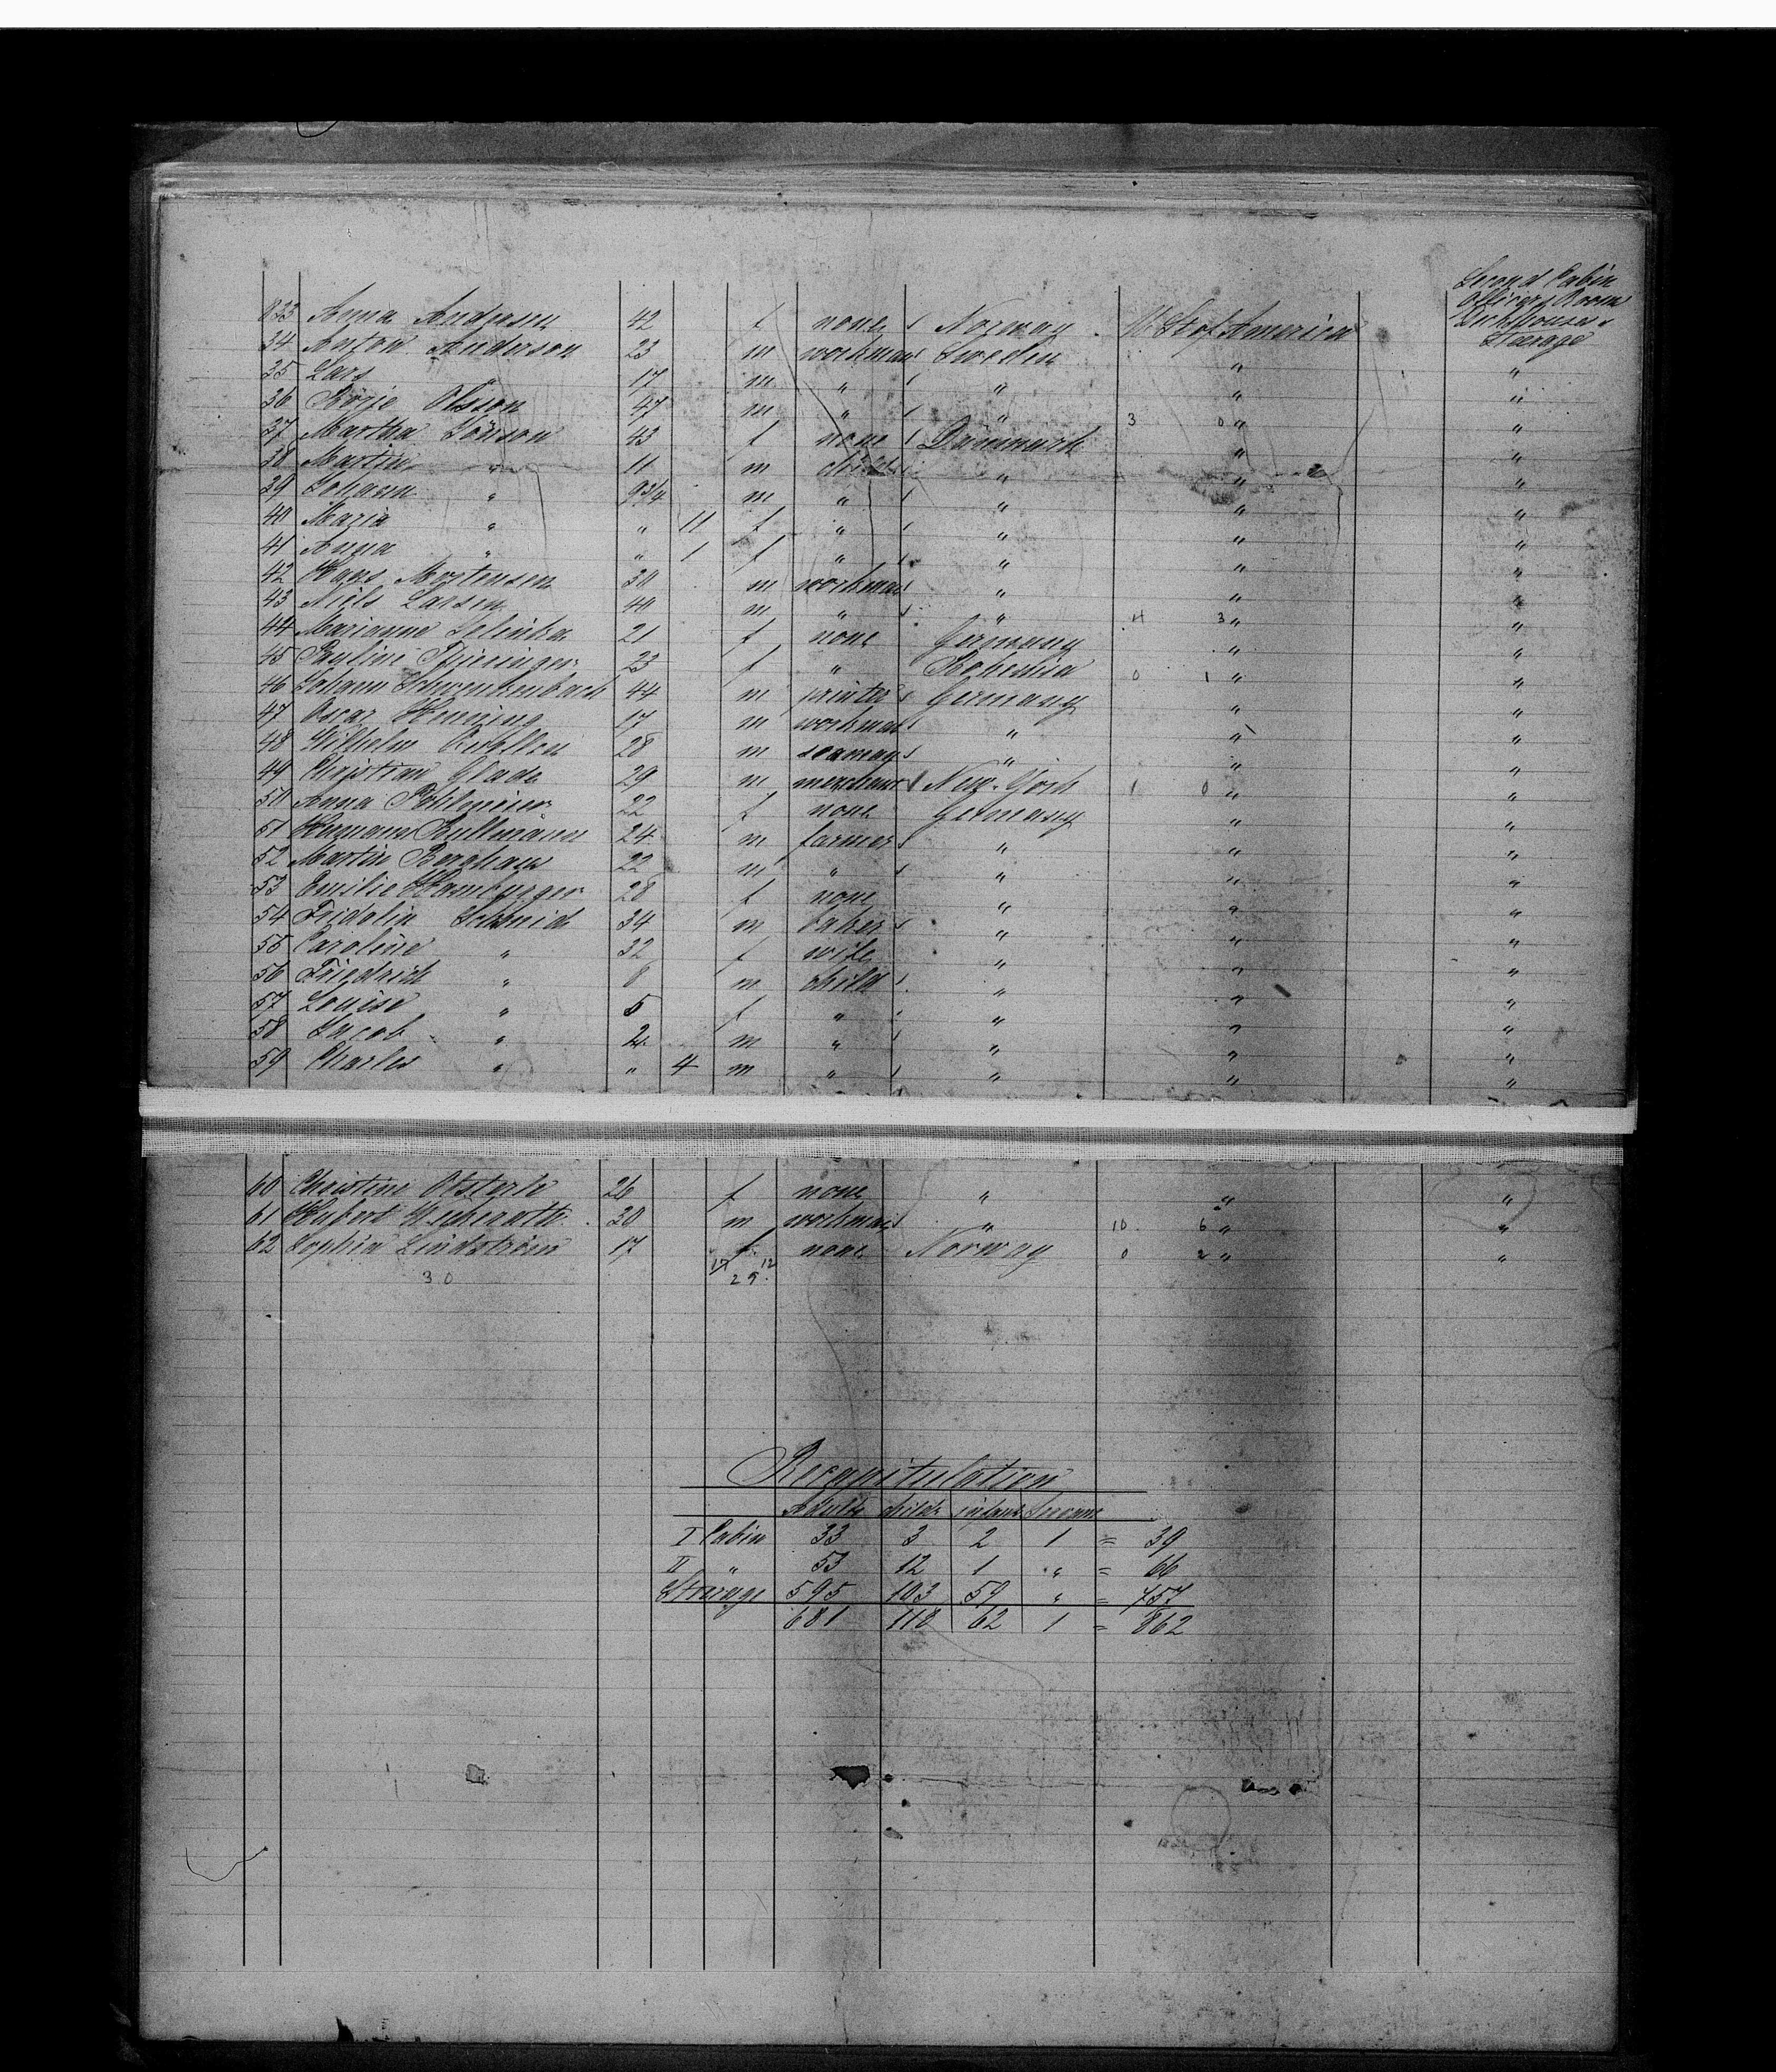 Second Cabin
Officers Room
Deckhouse &
Steerage
833 Anna Andersen 42 f none Norway U St of America
34 Anton Anderson 23 m workman Sweden " "
35 Lars " 17 m " " " "
36 Börje Olsson 47 m " " 3 0 " "
37 Martha Jönson 43 f none Dänemark " "
38 Martin " 11 m child " " "
39 Johann " 9 3/4 m " " " "
40 Maria " " 11 f " " " "
41 Anna " " 1 f " " " "
42 Hans Mortensen 30 m workman " " "
43 Niels Larsen 40 m " " 4 3 " "
44 Marianne 21 f none Germany " "
45 Pauline 23 f " Bohemia 0 1 " "
46 Johann Schwenkenbach 44 m printer Germany " "
47 Oscar Henning 17 m workman " " "
48 Wilhelm 28 m seaman " " "
49 Christian Glade 29 m merchant New-York 1 0 " "
50 Anna Pohlmeier 22 f none Germany " "
51 Hermann Kullmann 24 m farmer " " "
52 Martin Berghaus 22 m " " " "
53 Emilie 28 f none " " "
54 Fridolin Schmid 34 m baker " " "
55 Caroline " 32 f wife " " "
56 Friedrich " 8 m child " " "
57 Louise " 5 f " " " "
58 Jacob " 2 m " " " "
59 Charles " " 4 m " " " "
60 Christine 26 f none " " "
61 Hubert 30 m workman " 10 6 " "
62 Sophia Lindström 17 f none Norway 0 2 " "
17 12
30 29
Recapitulation
Adults childr infants
I Cabin 33 3 2 1 = 39
II " 53 12 1 " = 66
Steerage 595 103 59 " = 757
681 118 62 1 = 862